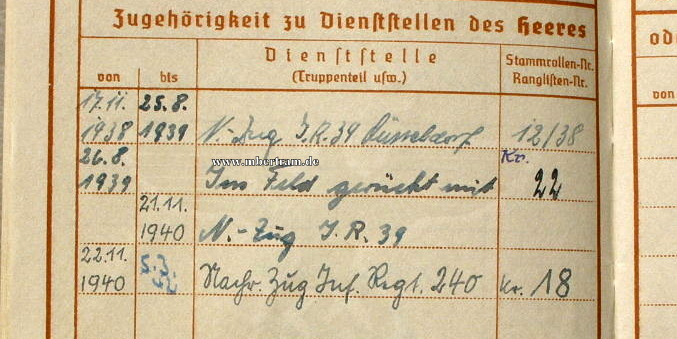 Zugehörigkeit zu Dienststellen des Heeres
von bis Dienststelle (Truppenteil usw.) Stammrollen-Nr. Ranglisten-Nr.
17.11. 1938 25.8. 1939 N.-Zug I.R. 39 Düsseldorf 12/38
www.mbertram.de
26.8. 1939 Ins Feld gerückt mit Kr. 22
21.11. 1940 N.-Zug I.R. 39
22.11. 1940 Nachr. Zug Inf. Regt. 240 Kr. 18
von